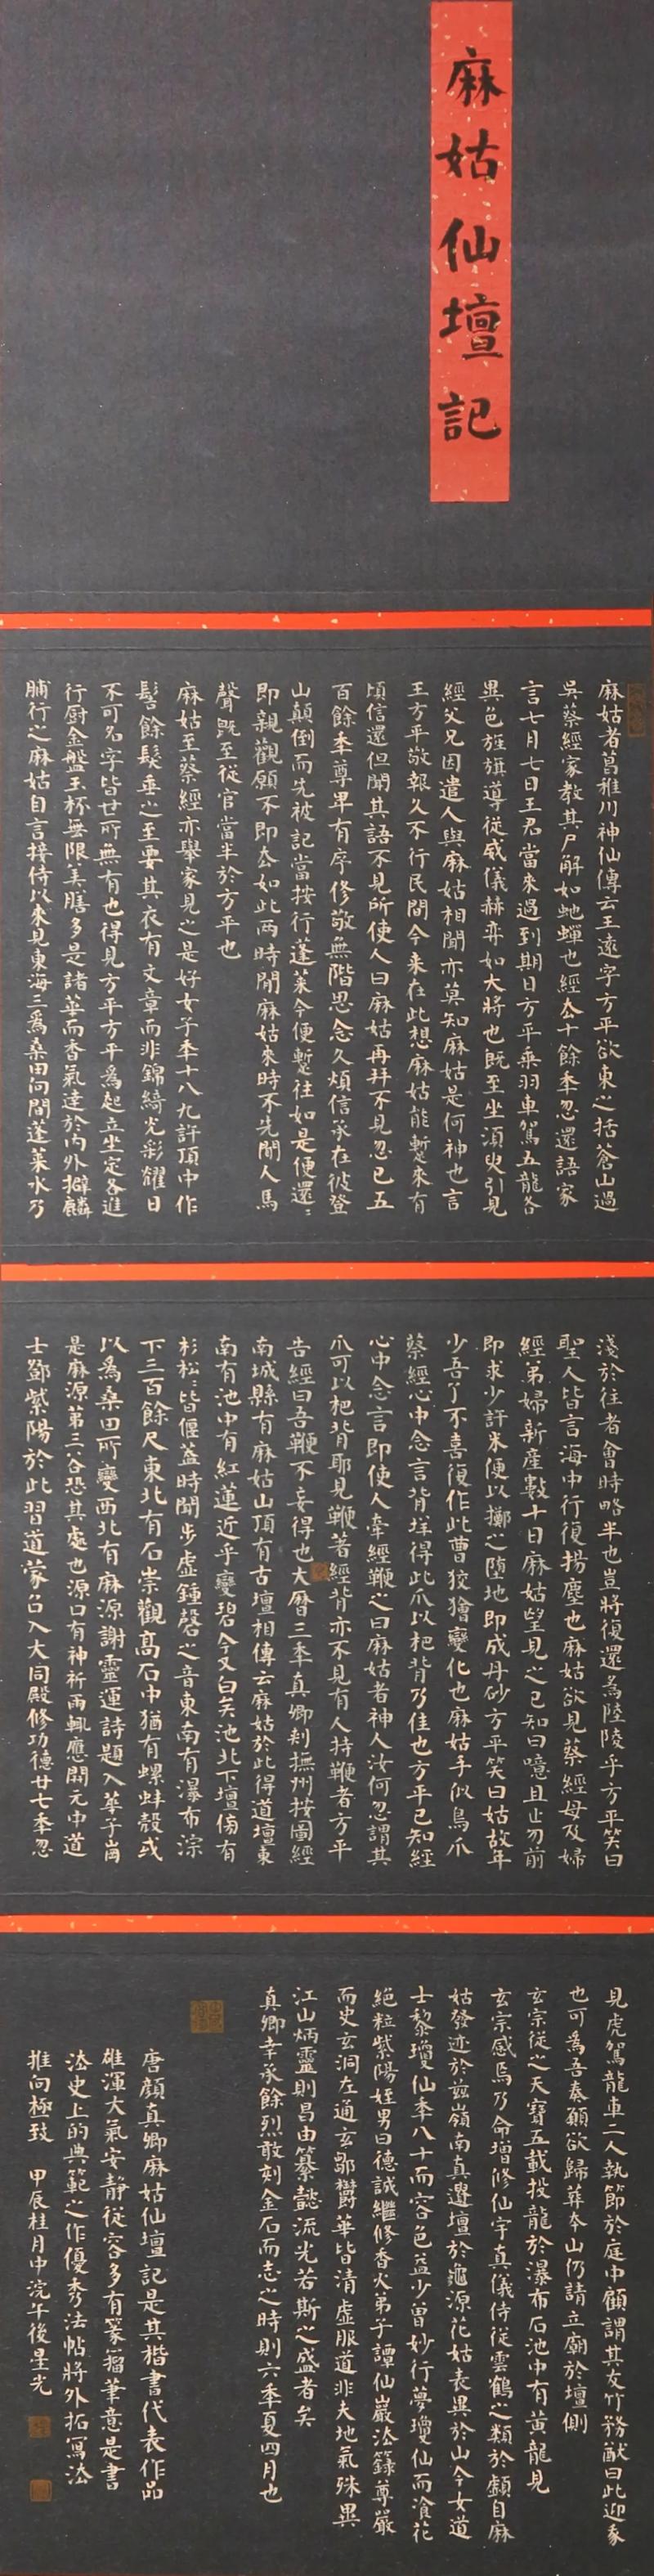 麻姑仙壇記
麻姑者葛稚川神仙傳云王遠字方平欲東之括蒼山過
吳蔡經家教其尸解如虵蟬也經去十餘年忽還語家
言七月七日王君當來過到期日方平乘羽車駕五龍各
異色旌旗導從威儀赫弈如大將也既至坐須臾引見
經父兄因遣人與麻姑相聞亦莫知麻姑是何神也言
王方平敬報久不行民間今來在此想麻姑能蹔來有
頃信還但聞其語不見所使人曰麻姑再拜不見忽已五
百餘年尊卑有序修敬無階思念久煩信承在彼登
山顛倒而先被記當按行蓬萊今便蹔往如是便還還
即親觀願不即去如此兩時聞麻姑來時不先聞人馬
聲既至從官當半於方平也
麻姑至蔡經亦舉家見之是好女子年十八九許頂中作
髻餘髮垂之至要其衣有文章而非錦綺光彩耀日
不可名字皆世所無有也得見方平方平為起立坐定各進
行廚金盤玉杯無限美膳多是諸華而香氣達於內外擗麟
脯行之麻姑自言接侍以來見東海三為桑田向間蓬萊水乃
淺於往者會時略半也豈將復還為陸陵乎方平笑曰
聖人皆言海中行復揚塵也麻姑欲見蔡經母及婦
經弟婦新產數十日麻姑望見之已知曰噫且止勿前
即求少許米便以擲之墮地即成丹砂方平笑曰姑故年
少吾了不喜復作此曹狡獪變化也麻姑手似鳥爪
蔡經心中念言背痒得此爪以杷背乃佳也方平已知經
心中念言即使人牽經鞭之曰麻姑者神人汝何忽謂其
爪可以杷背耶見鞭著經背亦不見有人持鞭者方平
告經曰吾鞭不妄得也大曆三年真卿刺撫州按圖經
南城縣有麻姑山頂有古壇相傳云麻姑於此得道壇東
南有池中有紅蓮近乎變碧今又白矣池北下壇傍有
杉松皆偃蓋時聞步虛鍾磬之音東南有瀑布淙
下三百餘尺東北有石崇觀高石中猶有螺蚌殼或
以為桑田所變西北有麻源謝靈運詩題入華子崗
是麻源第三谷恐其處也源口有神祈雨輒應開元中道
士鄧紫陽於此習道蒙召入大同殿修功德廿七年忽
見虎駕龍車二人執節於庭中顧謂其友竹務猷曰此迎我
也可為吾奏願欲歸葬本山仍請立廟於壇側
玄宗從之天寶五載投龍於瀑布石池中有黃龍見
玄宗感焉乃命增修仙宇真儀侍從雲鶴之類於戲自麻
姑發迹於茲嶺南真遺壇於龜源花姑表異於山今女道
士黎瓊仙年八十而容色益少曾妙行夢瓊仙而飡花
絕粒紫陽姪男曰德誠繼修香火弟子譚仙巖法籙尊嚴
而史玄洞左通玄鄒鬱華皆清虛服道非夫地氣殊異
江山炳靈則曷由纂懿流光若斯之盛者矣
真卿幸承餘烈敢刻金石而志之時則六年夏四月也
唐顏真卿麻姑仙壇記是其楷書代表作品
雄渾大氣安靜從容多有篆籀筆意是書
法史上的典範之作優秀法帖將外拓寫法
推向極致 甲辰桂月中浣午後星光